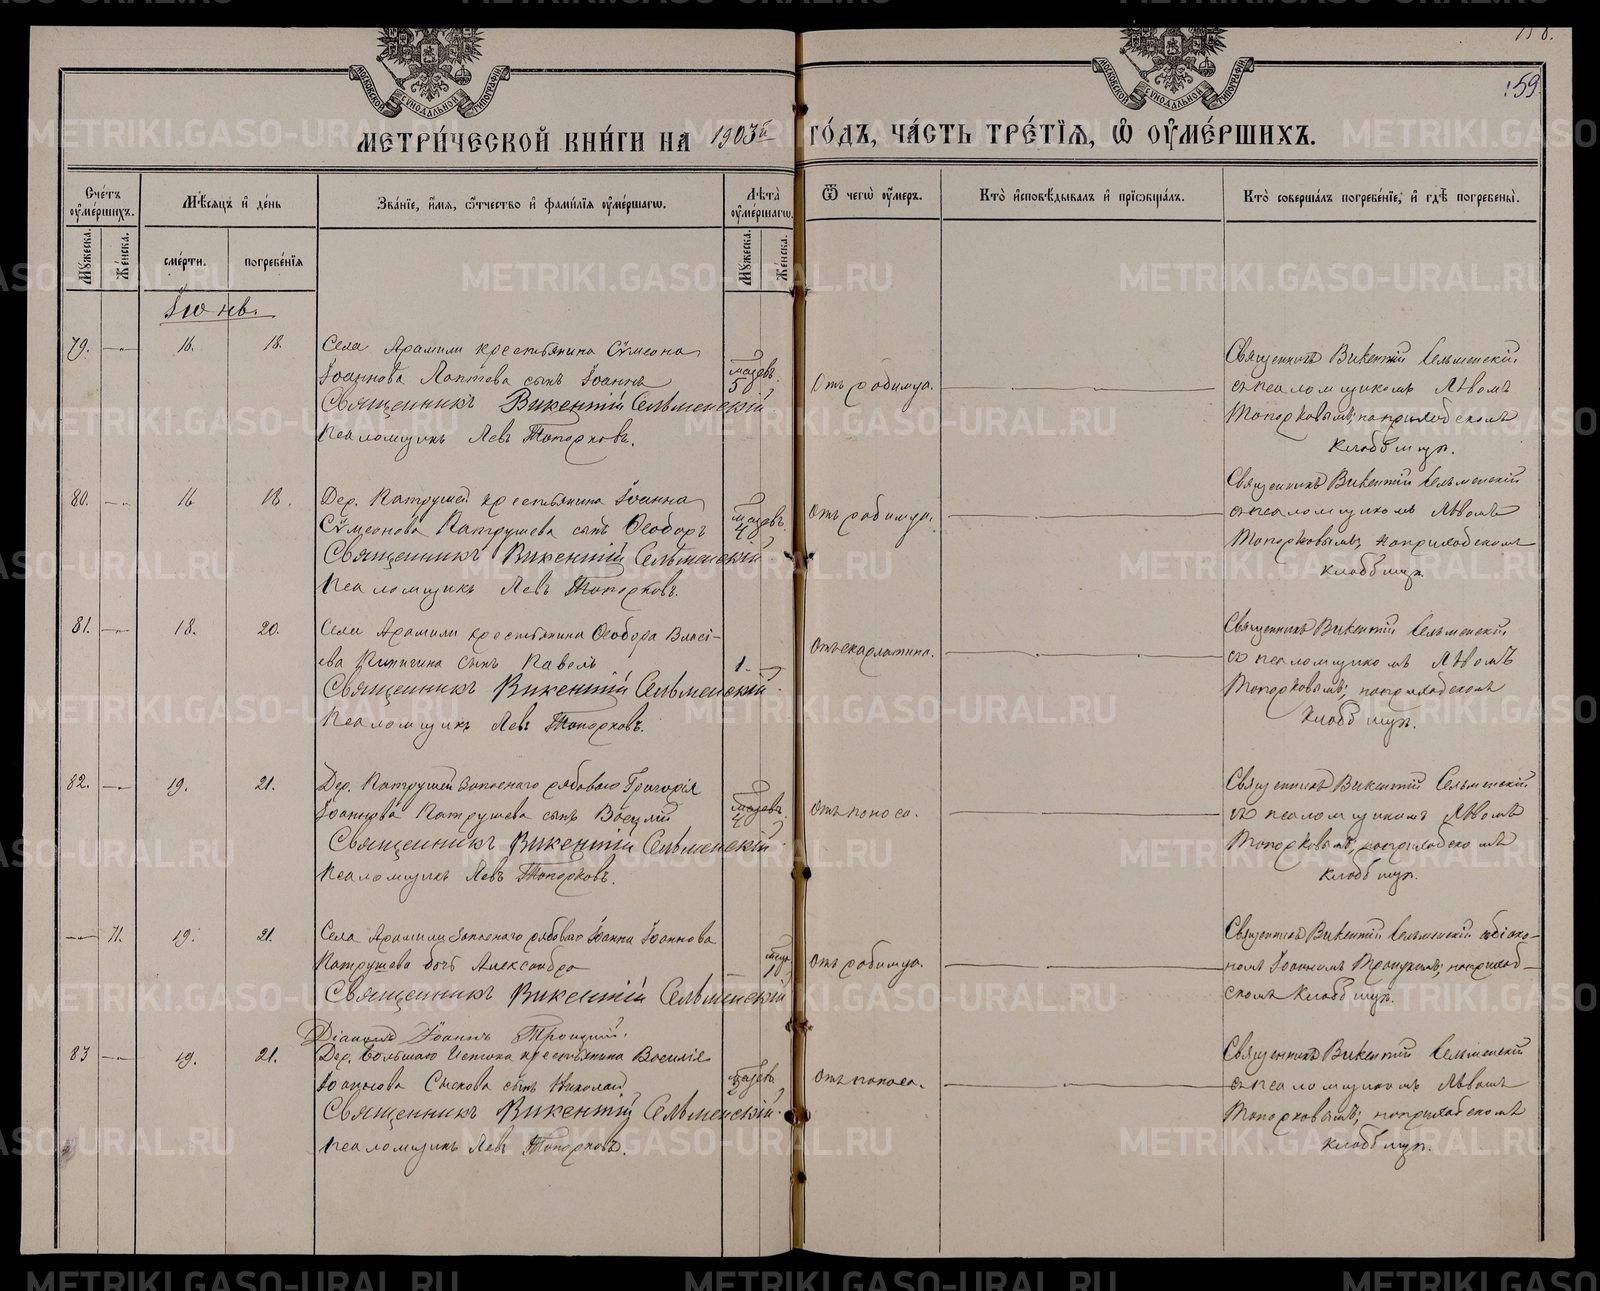 158.
159.
МЕТРИ́ЧЕСКОЙ КНИ́ГИ НА 1903й ГО́ДЪ, ЧА́СТЬ ТРЕ́ТІѦ, Ѡ҆ ОУ҆МЕ́РШИХЪ.
Сче́тъ оу҆ме́ршихъ.
Мѣ́сѧцъ и҆ де́нь
Зва́нїе, и҆́мѧ, ѻ҆́тчество и҆ фами́лїѧ оу҆ме́ршагѡ.
Лѣ́та оу҆ме́ршагѡ.
Ѿ чегѡ̀ оу҆́меръ.
Кто̀ и҆сповѣ́дывалъ и҆ прїѡбща́лъ.
Кто̀ соверша́лъ погребе́нїе, и҆ гдѣ̀ погребены̀.
Мꙋ́жеска. Же́нска. сме́рти. погребе́нїѧ Мꙋ́жеска. Же́нска.
Іюнь.
79. — 16. 18.
Села Арамили крестьянина Сѵмеона
Іоаннова Лаптева сынъ Іоаннъ
Священникъ Викентій Сельменскій
Псаломщикъ Левъ Топорковъ.
5 мѣсяцевъ
Отъ родимца.
Священникъ Викентій Сельменскій
съ псаломщикомъ Львомъ
Топорковымъ; на приходскомъ
кладбищѣ.
80. — 16 18.
Дер. Патрушей крестьянина Іоанна
Сѵмеонова Патрушева сынъ Ѳеодоръ
Священникъ Викентій Сельменскій
Псаломщикъ Левъ Топорковъ.
4 мѣсяцевъ
Отъ родимца.
Священникъ Викентій Сельменскій
съ псаломщикомъ Львомъ
Топорковымъ; на приходскомъ
кладбищѣ.
81. — 18. 20.
Села Арамили крестьянина Ѳеодора Власі-
ева сынъ Павелъ
Священникъ Викентій Сельменскій
Псаломщикъ Левъ Топорковъ.
1. —
Отъ скарлатина.
Священникъ Викентій Сельменскій
съ псаломщикомъ Львомъ
Топорковымъ; на приходскомъ
кладбищѣ.
82. — 19. 21.
Дер. Патрушей запаснаго рядоваго Григорія
Іоаннова Патрушева сынъ Василій
Священникъ Викентій Сельменскій
Псаломщикъ Левъ Топорковъ.
4 мѣсяцевъ
Отъ поноса.
Священникъ Викентій Сельменскій
съ псаломщикомъ Львомъ
Топорковымъ; на приходскомъ
кладбищѣ.
— 71. 19. 21.
Села Арамили запаснаго рядоваго Іоанна Іоаннова
Патрушева дочь Александра
Священникъ Викентій Сельменскій
Діаконъ Іоаннъ Троицкій.
1
Отъ родимца.
Священникъ Викентій Сельменскій съ діако-
номъ Іоанномъ Троицкимъ; на приход-
скомъ кладбищѣ.
83 — 19. 21.
Дер. Большаго Истока крестьянина Василія
Іоаннова Сыскова сынъ Николай
Священникъ Викентій Сельменскій
Псаломщикъ Левъ Топорковъ.
Отъ поноса.
Священникъ Викентій Сельменскій
съ псаломщикомъ Львомъ
Топорковымъ; на приходскомъ
кладбищѣ.
METRIKI.GASO-URAL.RU